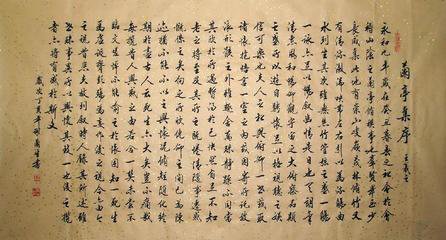 蘭亭集序 王羲之
永和九年歲在癸丑暮春之初會於會
稽山陰之蘭亭修禊事也群賢畢至少
長咸集此地有崇山峻嶺茂林修竹又
有清流激湍映帶左右引以為流觴曲
水列坐其次雖無絲竹管弦之盛一觴
一詠亦足以暢敘幽情是日也天朗氣
清惠風和暢仰觀宇宙之大俯察品類
之盛所以遊目騁懷足以極視聽之娛
信可樂也夫人之相與俯仰一世或取
諸懷抱悟言一室之內或因寄所託放
浪形骸之外雖趣舍萬殊靜躁不同當
其欣於所遇暫得於己快然自足不知
老之將至及其所之既倦情隨事遷感
慨係之矣向之所欣俯仰之間已為陳
跡猶不能不以之興懷況修短隨化終
期於盡古人云死生亦大矣豈不痛哉
每覽昔人興感之由若合一契未嘗不
臨文嗟悼不能喻之於懷固知一死生
為虛誕齊彭殤為妄作後之視今亦由今
之視昔悲夫故列敘時人錄其所述雖
世殊事異所以興懷其致一也後之覽
者亦將有感於斯文
歲次丁亥年 書